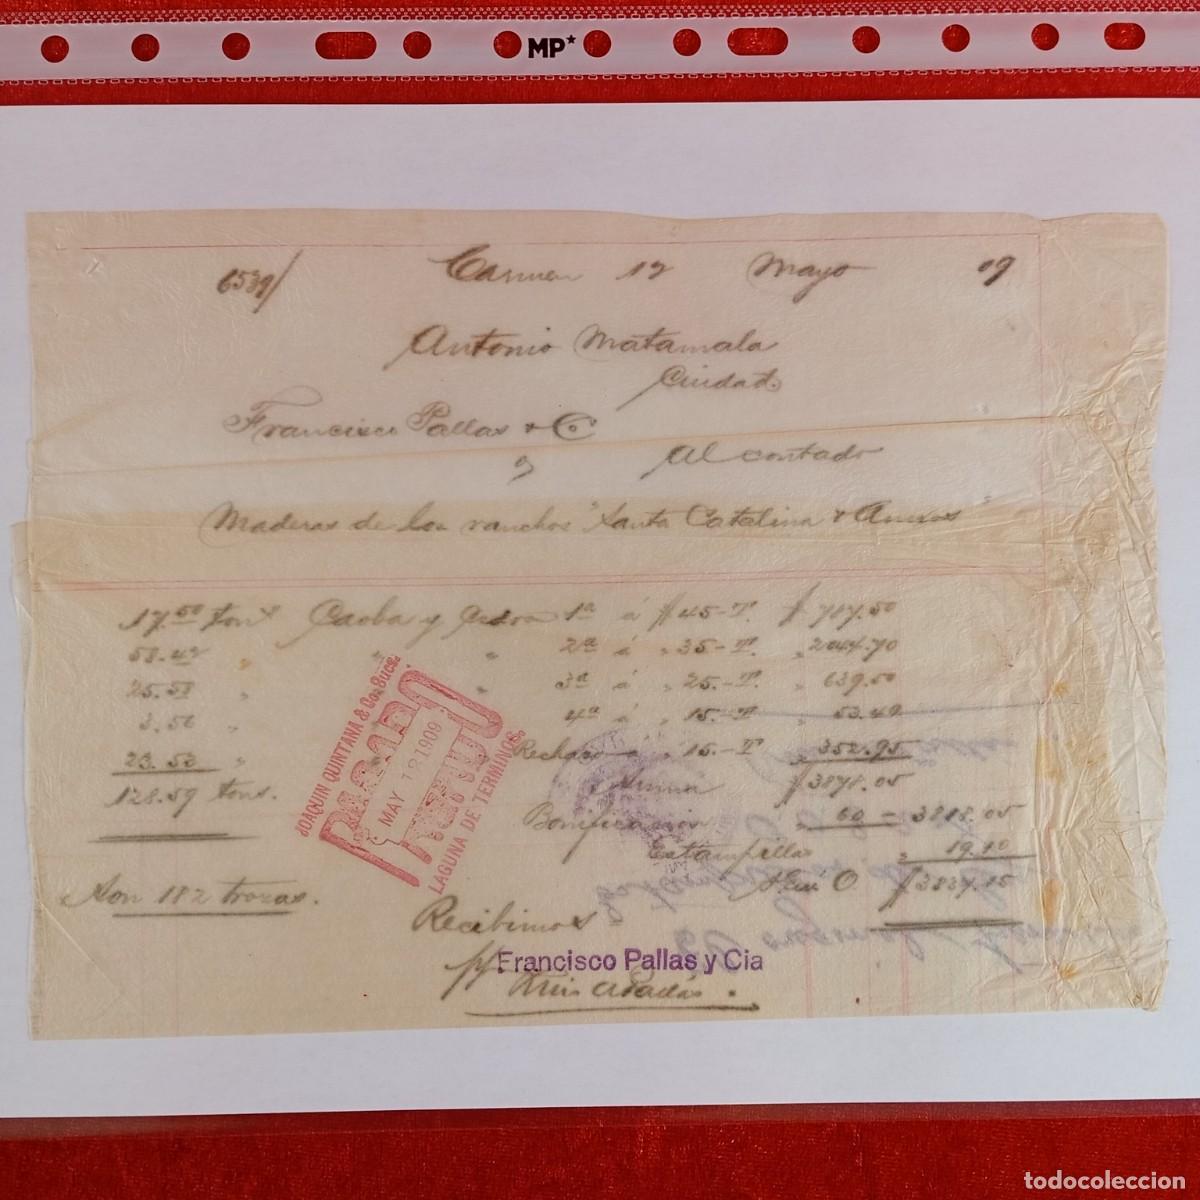 MP*
6539/ Carmen 12 Mayo 09
Antonio Matamala
Ciudad.
Francisco Pallas & Co
Al contado
Maderas de los ranchos "Santa Catalina & Anexos"
17.50 tons Caoba y Cedro 1ª á $ 45-T. $ 787.50
58.42 " " " 2ª á " 35-T. " 2044.70
25.58 " " 3ª á " 25.-T. " 639.50
3.56 " 4ª á " 15.-T " 53.40
23.53 " Rechazo " 15.-T " 352.95
128.59 tons. Suma $ 3878.05
Bonificacion " 60 - 3818.05
Estampillas " 19.10
$ 3837.15
Son 182 trozas.
Recibimos
p/. Francisco Pallas y Cia
JOAQUIN QUINTANA & Co. SUCS.
PAGADO
MAY 12 1909
LAGUNA DE TERMINOS.
todocoleccion